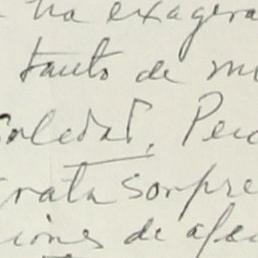 ha exagera
tanto de m
soledad. Pero
grata sorpre
iones de afec